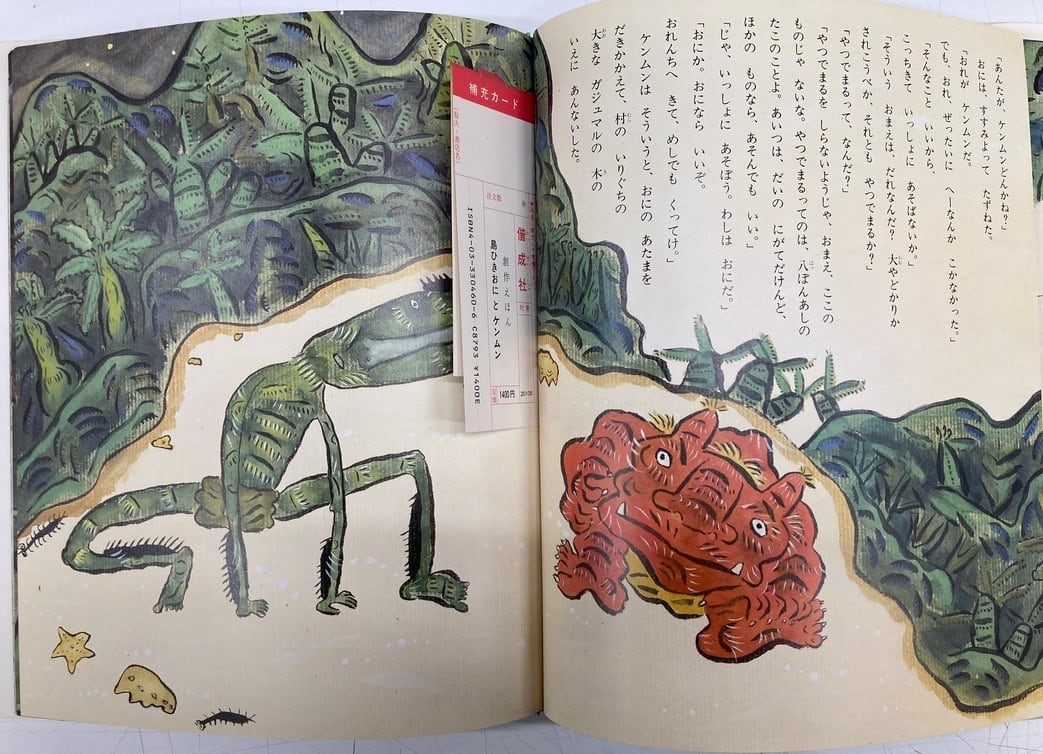 「あんたが、ケンムンどんかね？」
おには、すすみよって たずねた。
「おれが ケンムンだ。
でも、おれ、ぜったいに へーなんか こかなかった。」
「そんなこと いいから、
こっちきて いっしょに あそばないか。」
「そういう おまえは、だれなんだ？ 大やどかりか
されこうべか、それとも やつでまるか？」
「やつでまるって、なんだ？」
「やつでまるを しらないようじゃ、おまえ、ここの
ものじゃ ないな。やつでまるってのは、八ぽんあしの
たこのことよ。あいつは、だいの にがてだけんど、
ほかの ものなら、あそんでも いい。」
「じゃ、いっしょに あそぼう。わしは おにだ。」
「おにか。おになら いいぞ。
おれんちへ きて、めしでも くってけ。」
ケンムンは そういうと、おにの あたまを
だきかかえて、村の いりぐちの
大きな ガジュマルの 木の
いえに あんないした。
補充カード
注文数
偕成社
創作えほん
島ひきおに と ケンムン
ISBN4-03-330460-6 C8793 ¥1400E
定価 1400円